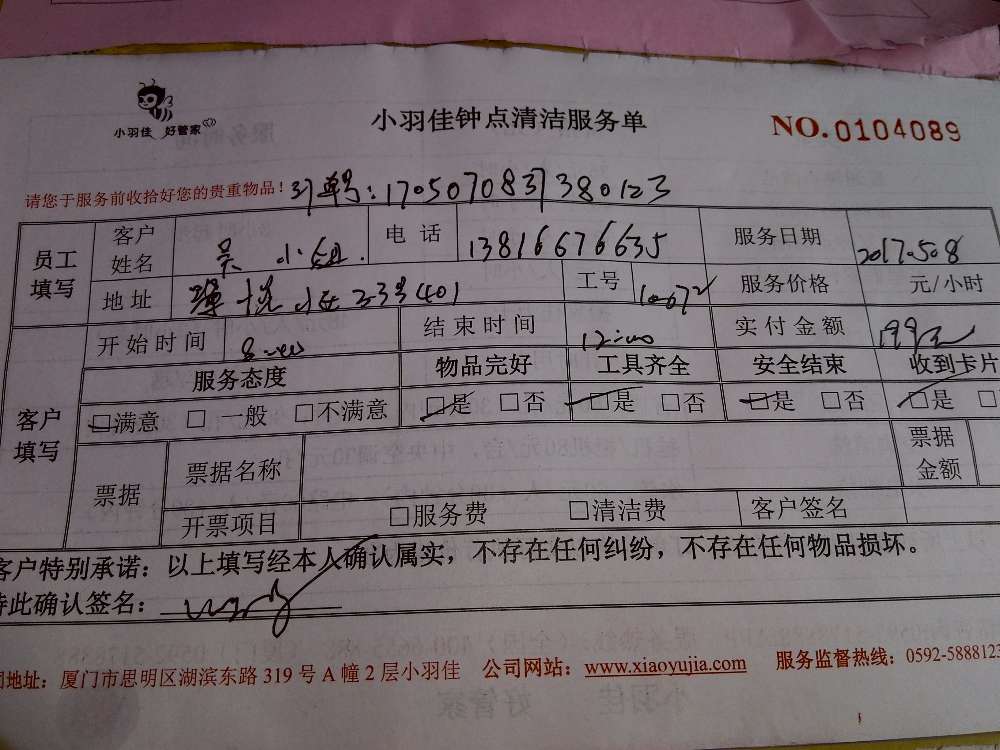 小羽佳 好管家
小羽佳钟点清洁服务单
NO.0104089
请您于服务前收拾好您的贵重物品！订单号:1705070837380123
员工填写 客户姓名 吴小姐 电话 13816676635 服务日期 2017.508
地址 小区 401 工号 10672 服务价格 元/小时
客户填写 开始时间 8:00 结束时间 12:00 实付金额 199元
服务态度 物品完好 工具齐全 安全结束 收到卡片
□满意 □一般 □不满意 □是 □否 □是 □否 □是 □否 □是 □
票据 票据名称 票据金额
开票项目 □服务费 □清洁费 客户签名
客户特别承诺：以上填写经本人确认属实，不存在任何纠纷，不存在任何物品损坏。
特此确认签名：
地址：厦门市思明区湖滨东路 319 号 A 幢 2 层小羽佳 公司网站：www.xiaoyujia.com 服务监督热线：0592-5888123